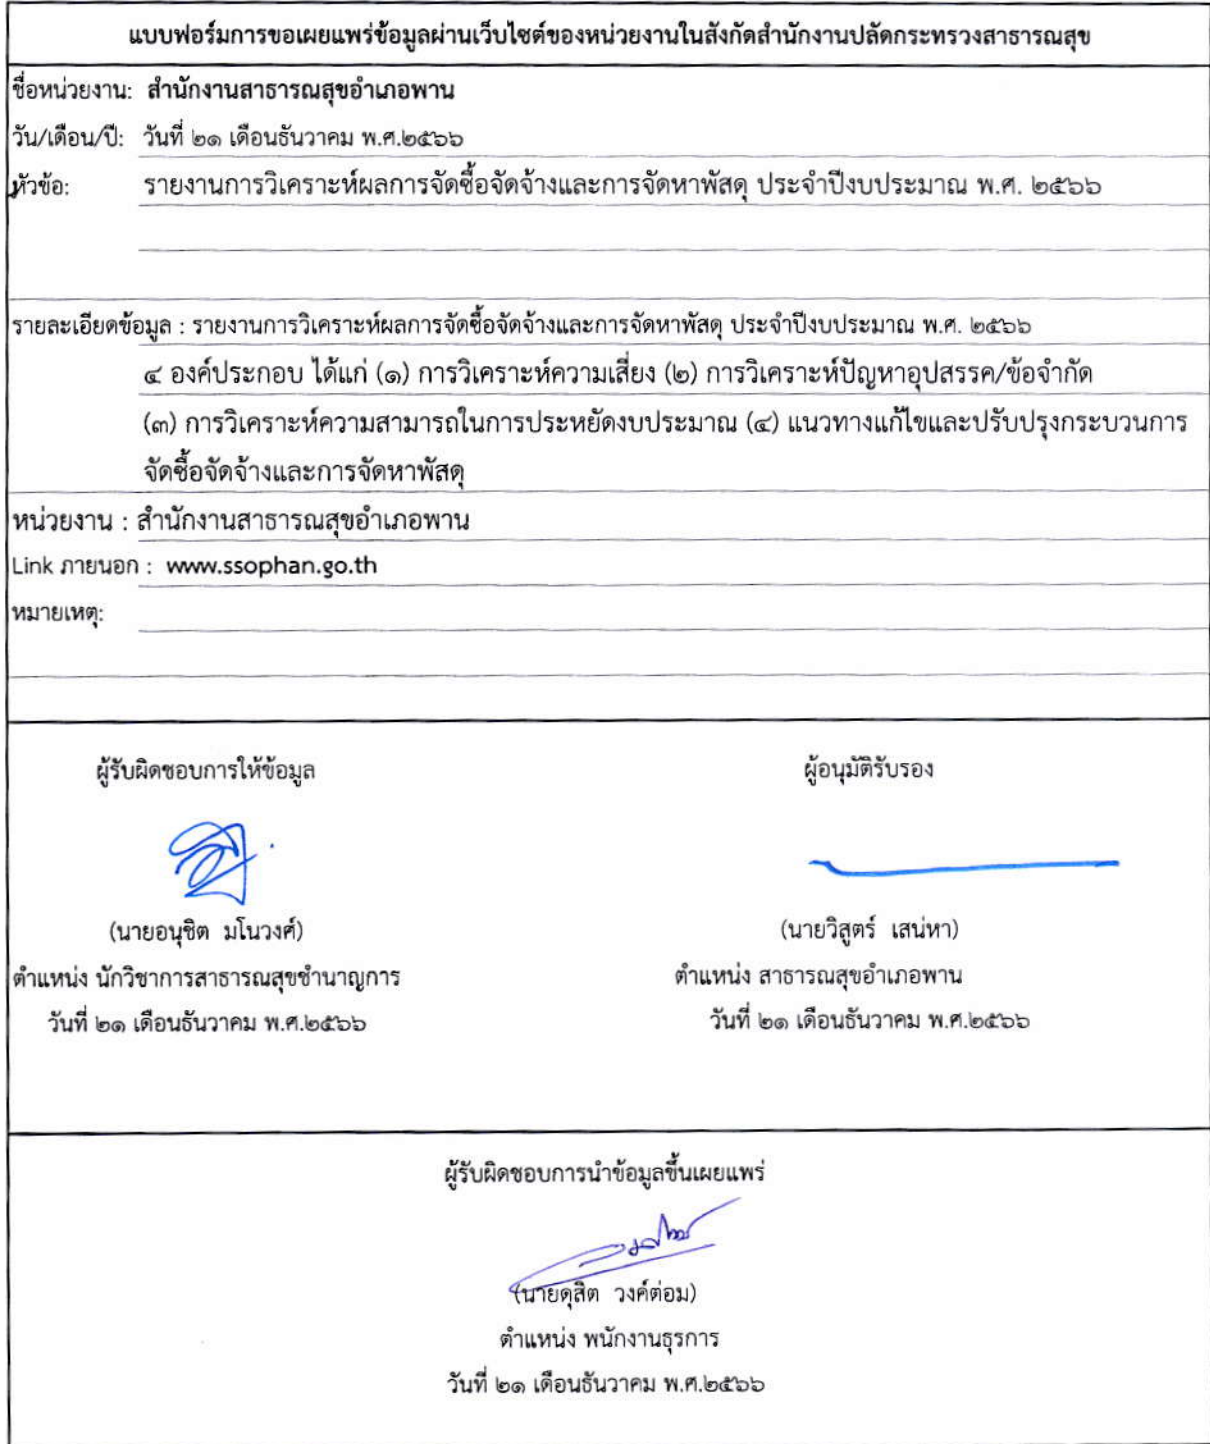 แบบฟอร์มการขอเผยแพร่ข้อมูลผ่านเว็บไซต์ของหน่วยงานในสังกัดสำนักงานปลัดกระทรวงสาธารณสุข
ชื่อหน่วยงาน: สำนักงานสาธารณสุขอำเภอพาน
วัน/เดือน/ปี: วันที่ ๒๑ เดือนธันวาคม พ.ศ.๒๕๖๖
หัวข้อ: รายงานการวิเคราะห์ผลการจัดซื้อจัดจ้างและการจัดหาพัสดุ ประจำปีงบประมาณ พ.ศ. ๒๕๖๖
รายละเอียดข้อมูล : รายงานการวิเคราะห์ผลการจัดซื้อจัดจ้างและการจัดหาพัสดุ ประจำปีงบประมาณ พ.ศ. ๒๕๖๖
๔ องค์ประกอบ ได้แก่ (๑) การวิเคราะห์ความเสี่ยง (๒) การวิเคราะห์ปัญหาอุปสรรค/ข้อจำกัด
(๓) การวิเคราะห์ความสามารถในการประหยัดงบประมาณ (๔) แนวทางแก้ไขและปรับปรุงกระบวนการ
จัดซื้อจัดจ้างและการจัดหาพัสดุ
หน่วยงาน : สำนักงานสาธารณสุขอำเภอพาน
Link ภายนอก : www.ssophan.go.th
หมายเหตุ:
ผู้รับผิดชอบการให้ข้อมูล ผู้อนุมัติรับรอง
(นายอนุชิต มโนวงศ์) (นายวิสูตร์ เสน่หา)
ตำแหน่ง นักวิชาการสาธารณสุขชำนาญการ ตำแหน่ง สาธารณสุขอำเภอพาน
วันที่ ๒๑ เดือนธันวาคม พ.ศ.๒๕๖๖ วันที่ ๒๑ เดือนธันวาคม พ.ศ.๒๕๖๖
ผู้รับผิดชอบการนำข้อมูลขึ้นเผยแพร่
(นายดุสิต วงค์ต่อม)
ตำแหน่ง พนักงานธุรการ
วันที่ ๒๑ เดือนธันวาคม พ.ศ.๒๕๖๖